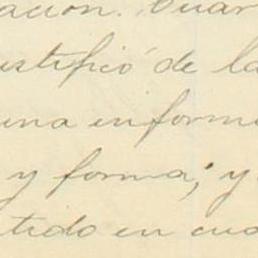 ación. Cuar
ustificó de la
una inform
y forma; y
tido en cua